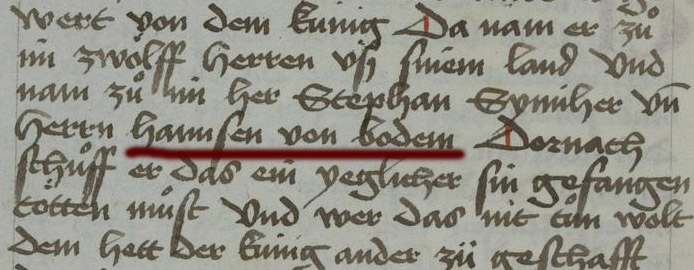 wert von dem kunig Da nam er zuͦ
im zwoͤlff herren vß sinem land Vnd
nam zuͦ im her Stephan Symiher vn̄
herrn hannsen von bodem Dornach
schuͦff er das ein yeglicher sin gefangen
toͤtten muͤst Vnd wer das nit tuͦn wolt
dem hett der kunig ander zuͤ geschafft